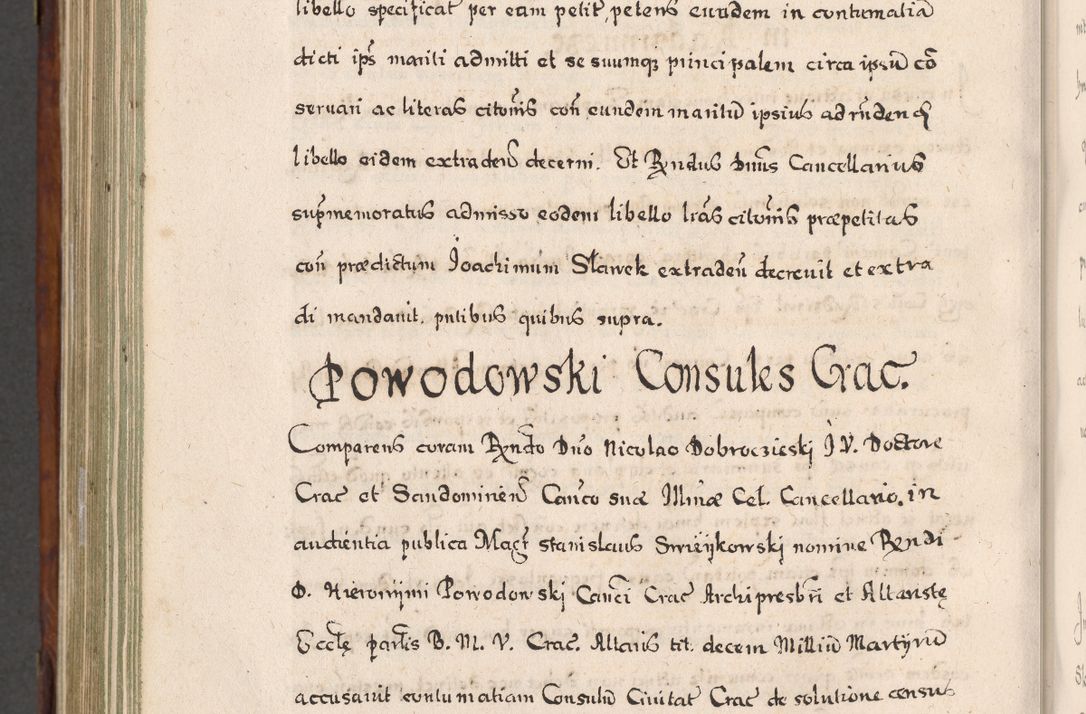 libello specificat per eam petit, petens eundem in contumatiā
dicti ip̄s mariti admitti et se suumq principalem circa ipsū cō
servari ac literas citōnis con̄ eundem maritū ipsius ad rn̄dend
libello eidem extradeñ decerni. Et Rndus Dn̄us Cancellarius
supr̄memoratus admisso eodem libello lrās citōnis præpetitas
con̄ prædictum Joachimum Sławek extradeñ decrevit et extra
di mandavit. pn̄tibus quibus supra.
Powodowski Consules Crac.
Comparens coram Rndo Dn̄o Nicolao Dobroczieski J. V. Doctore
Crac et Sandomirień Can̄co suæ Illm̄æ Cel. Cancellario. in
audientia publica Magr̄ Stanislaus Swieÿkowskj nomine Rendi
D. Hieronÿmi Powodowskj Can̄ci Crac Archipresbrī et Altaristę
Eccłę parłis B. M. V. Crac. Altaris tit. decem Milliū Martyrū
accusavit contumatiam Consulū Civitat Crac de solutione census